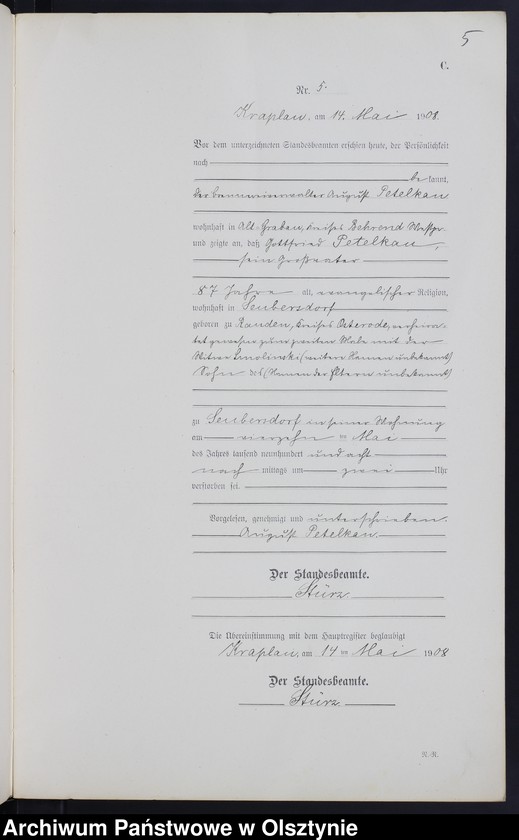 5
C.
Nr. 5.
Kraplau, am 14. Mai 1908.
Vor dem unterzeichneten Standesbeamten erschien heute, der Persönlichkeit
nach
be kannt,
der August Petelkau
wohnhaft in Alt-Grabau, Kreises Behrend Westpr.
und zeigte an, daß Gottfried Petelkau,
sein Großvater
87 Jahre alt, evangelischer Religion,
wohnhaft in Seubersdorf
geboren zu Rauden, Kreises Osterode, verheira-
tet gewesen zum zweiten Male mit der
Witwe Smolinski (weitere Namen unbekannt)
Sohn des (Namen der Eltern unbekannt)
zu Seubersdorf in seiner Wohnung
am vierzehn ten Mai
des Jahres tausend neunhundert und acht
nach mittags um zwei Uhr
verstorben sei.
Vorgelesen, genehmigt und unterschrieben.
August Petelkau.
Der Standesbeamte.
Stürz.
Die Übereinstimmung mit dem Hauptregister beglaubigt
Kraplau, am 14 ten Mai 1908
Der Standesbeamte.
Stürz.
Archiwum Państwowe w Olsztynie